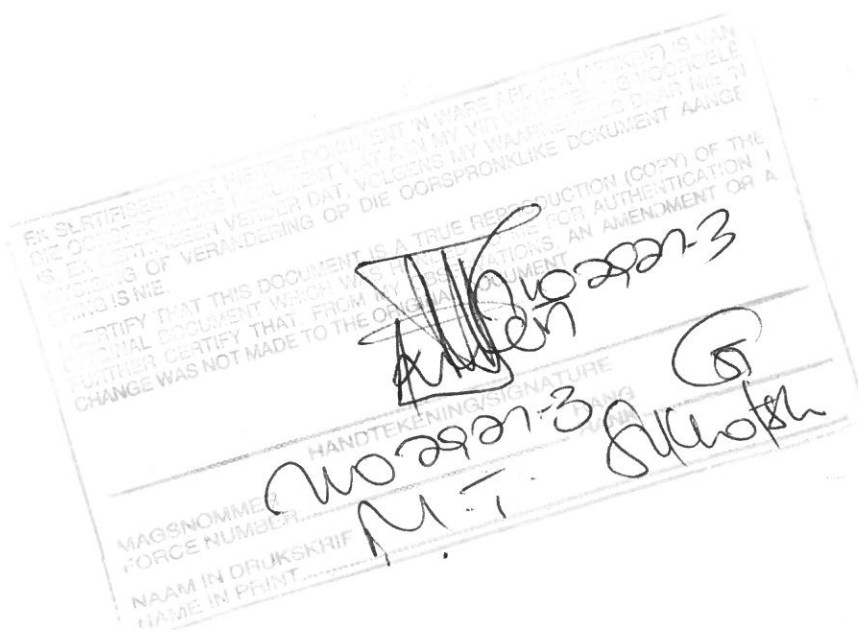 EK SERTIFISEER DAT HIERDIE DOKUMENT 'N WARE AFDRUK (AFSKRIF) IS VAN
DIE OORSPRONKLIKE DOKUMENT WAT AAN MY VIR WAARMERKING VOORGELÊ
IS. EK SERTIFISEER VERDER DAT, VOLGENS MY WAARNEMINGS DAAR NIE 'N
WYSIGING OF VERANDERING OP DIE OORSPRONKLIKE DOKUMENT AANGE
BRING IS NIE.
I CERTIFY THAT THIS DOCUMENT IS A TRUE REPRODUCTION (COPY) OF THE
ORIGINAL DOCUMENT WHICH WAS HANDED TO ME FOR AUTHENTICATION I
FURTHER CERTIFY THAT FROM MY OBSERVATIONS, AN AMENDMENT OR A
CHANGE WAS NOT MADE TO THE ORIGINAL DOCUMENT
HANDTEKENING/SIGNATURE
MAGSNOMMER RANG
FORCE NUMBER RANK
NAAM IN DRUKSKRIF
NAME IN PRINT M.T.